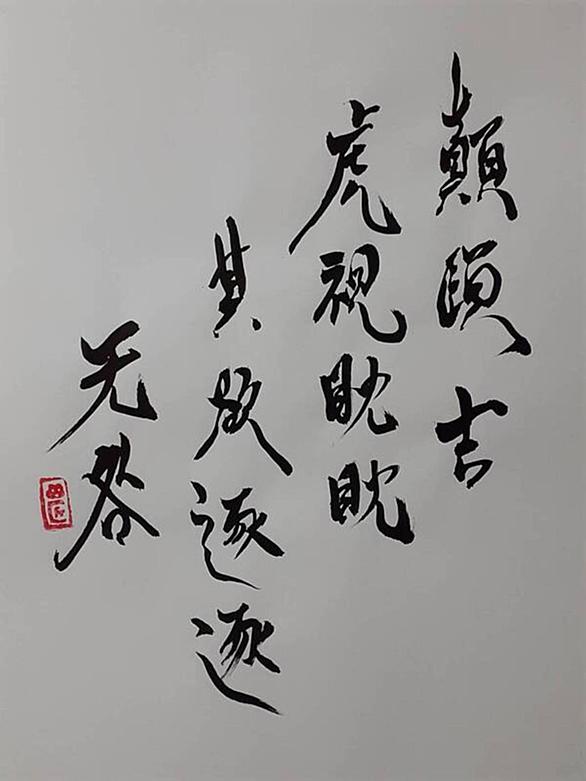 顛頤吉
虎視眈眈
其欲逐逐
无咎